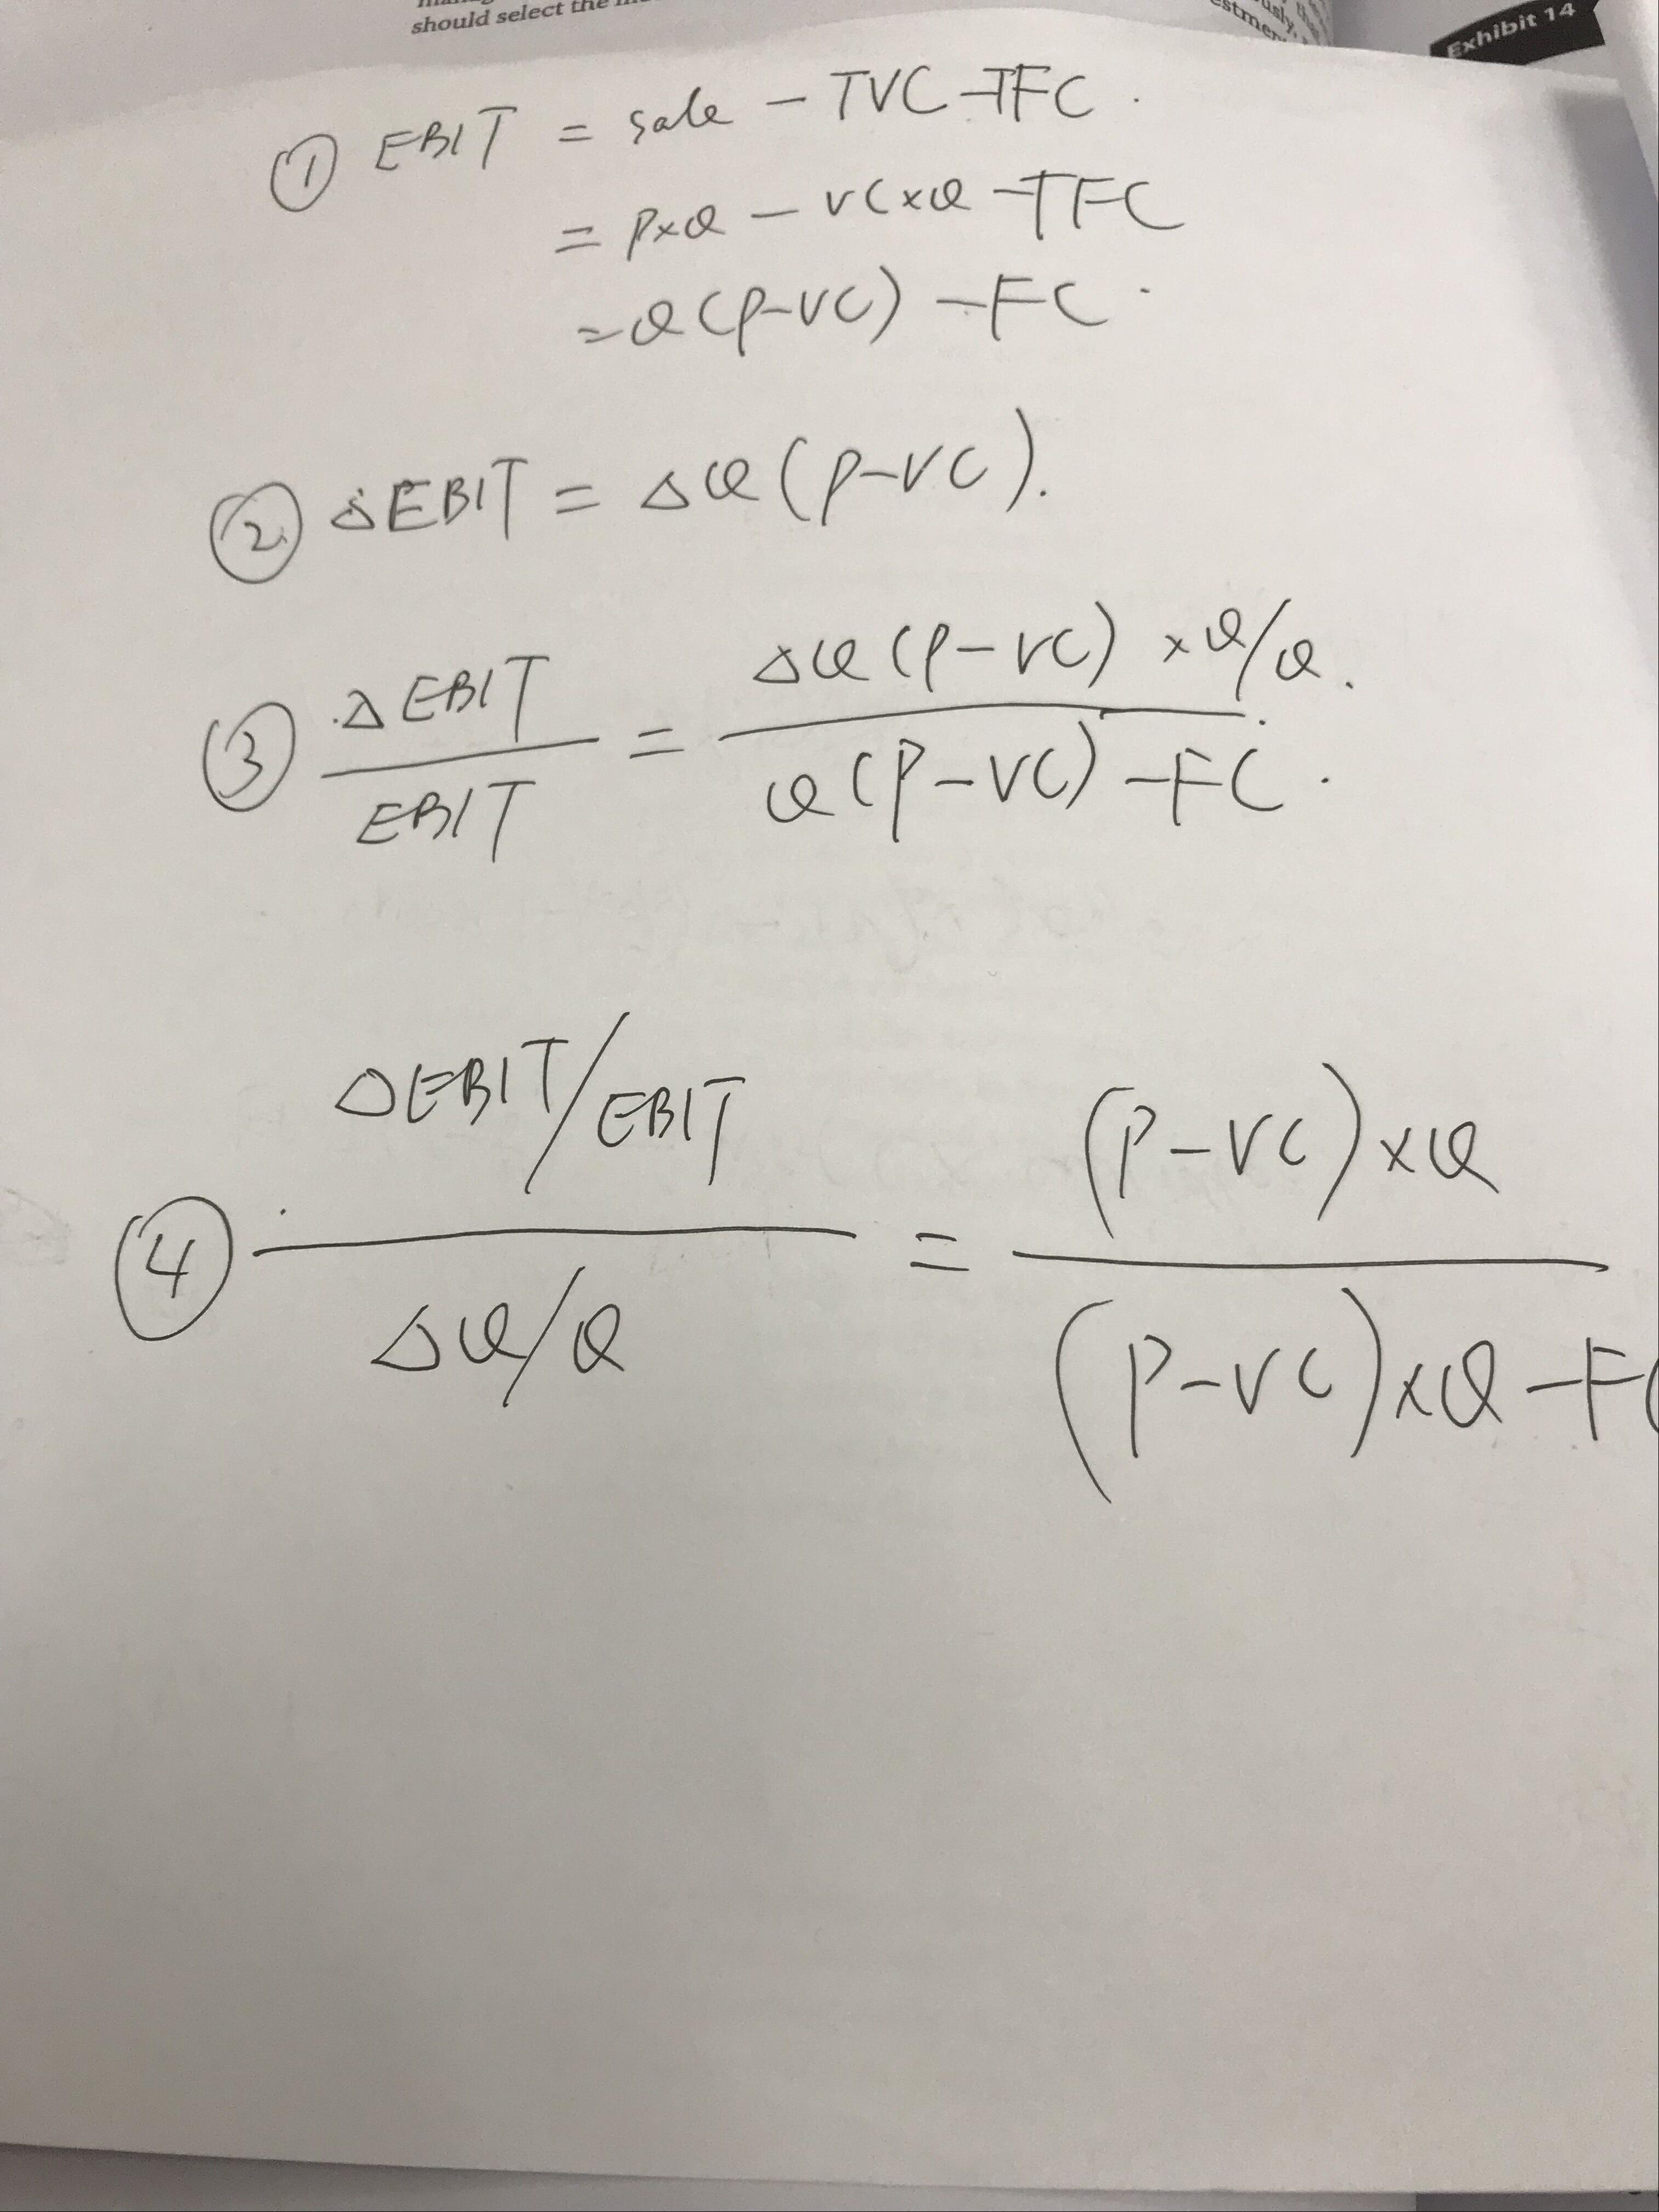 should select the
Exhibit 14
① EBIT = sale - TVC - TFC.
= P×Q - VC×Q - TFC
= Q(P-VC) - FC.
② ΔEBIT = ΔQ(P-VC).
③ ΔEBIT / EBIT = ΔQ(P-VC) ×Q/Q. / Q(P-VC) - FC.
④ ΔEBIT/EBIT / ΔQ/Q = (P-VC)×Q / (P-VC)×Q - F